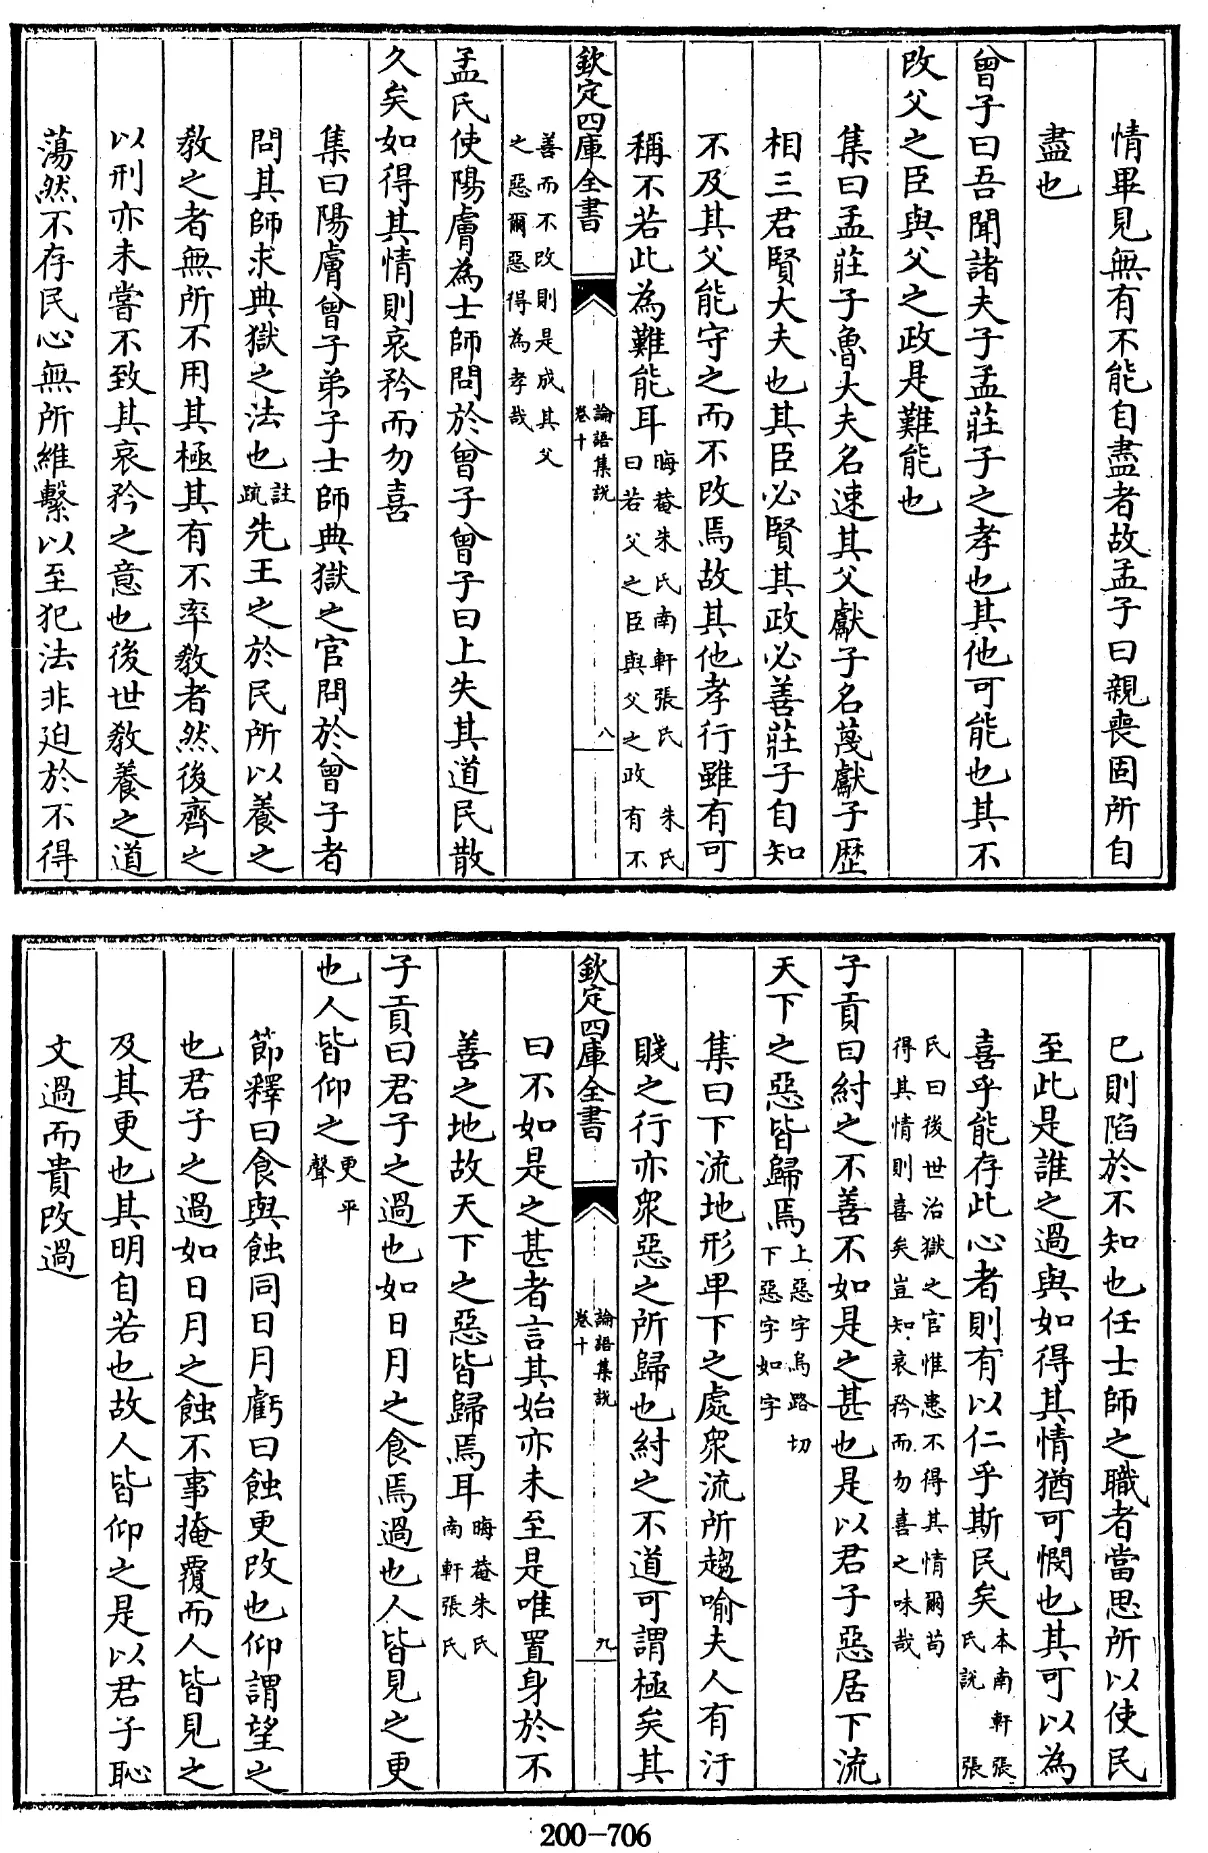 情畢見無有不能自盡者故孟子曰親喪固所自
盡也
曾子曰吾聞諸夫子孟莊子之孝也其他可能也其不
改父之臣與父之政是難能也
集曰孟莊子魯大夫名速其父獻子名蔑獻子歷
相三君賢大夫也其臣必賢其政必善莊子自知
不及其父能守之而不改焉故其他孝行雖有可
稱不若此為難能耳晦菴朱氏南軒張氏 朱氏
曰若父之臣與父之政有不
欽定四庫全書
論語集説
卷十
八
善而不改則是成其父
之惡爾惡得為孝哉
孟氏使陽膚為士師問於曾子曾子曰上失其道民散
久矣如得其情則哀矜而勿喜
集曰陽膚曾子弟子士師典獄之官問於曾子者
問其師求典獄之法也註疏先王之於民所以養之
教之者無所不用其極其有不率教者然後齊之
以刑亦未嘗不致其哀矜之意也後世教養之道
蕩然不存民心無所維繫以至犯法非廹於不得
已則陷於不知也任士師之職者當思所以使民
至此是誰之過與如得其情猶可憫也其可以為
喜乎能存此心者則有以仁乎斯民矣本南軒張
氏説 張
氏曰後世治獄之官惟患不得其情爾苟
得其情則喜矣豈知哀矜而勿喜之味哉
子貢曰紂之不善不如是之甚也是以君子惡居下流
天下之惡皆歸焉上惡字烏路切
下惡字如字
集曰下流地形卑下之處衆流所趨喻夫人有汙
賤之行亦衆惡之所歸也紂之不道可謂極矣其
欽定四庫全書
論語集説
卷十
九
曰不如是之甚者言其始亦未至是唯置身於不
善之地故天下之惡皆歸焉耳晦菴朱氏
南軒張氏
子貢曰君子之過也如日月之食焉過也人皆見之更
也人皆仰之更平
聲
節釋曰食與蝕同日月虧曰蝕更改也仰謂望之
也君子之過如日月之蝕不事掩覆而人皆見之
及其更也其明自若也故人皆仰之是以君子恥
文過而貴改過
200-706